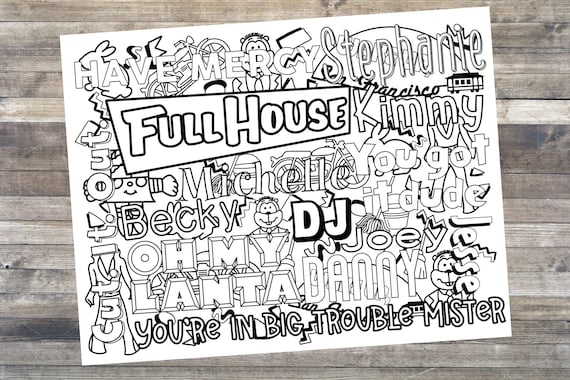 HAVE MERCY
Stephanie
San Francisco
FULL HOUSE
Kimmy
cut. it. out.
You got
it dude
Michelle
Becky
DJ
Joey
Jesse
OH MY
LANTA
DANNY
YOU'RE IN BIG TROUBLE MISTER